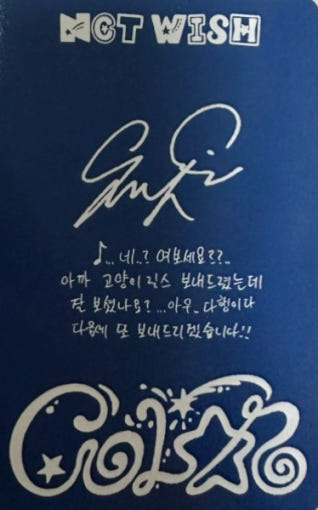 NCT WISH
♪... 네..? 여보세요??..
아까 고양이 릭스 보내드렸는데
잘 보셨나요? ...아우.. 다행이다
다음에 또 보내드리겠습니다!!
COLOR